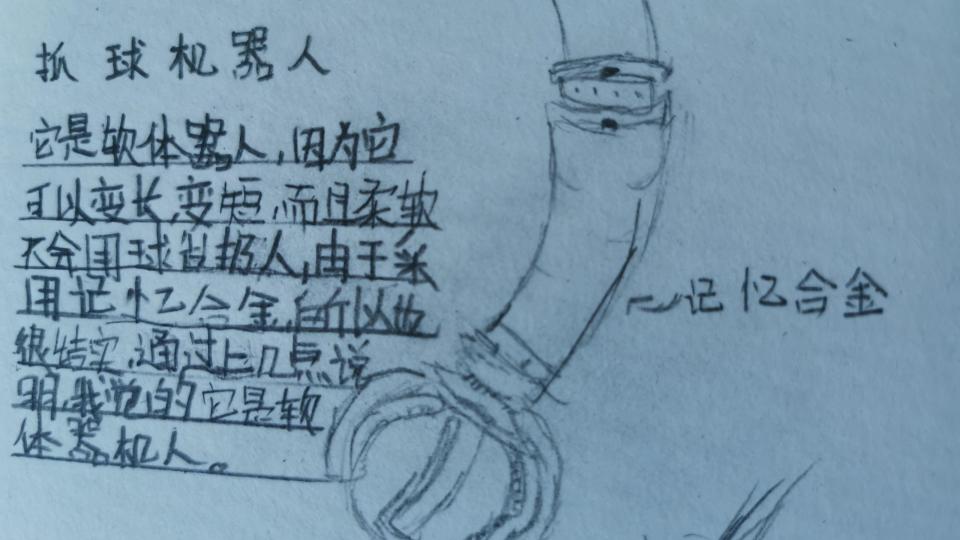 抓球机器人
它是软体器人,因为它
可以变长,变短,而且柔软
不会因球 扔人,由于采
用记忆合金,所以也
很结实,通过上几点说
明,我觉的它是软
体器机人。
记忆合金